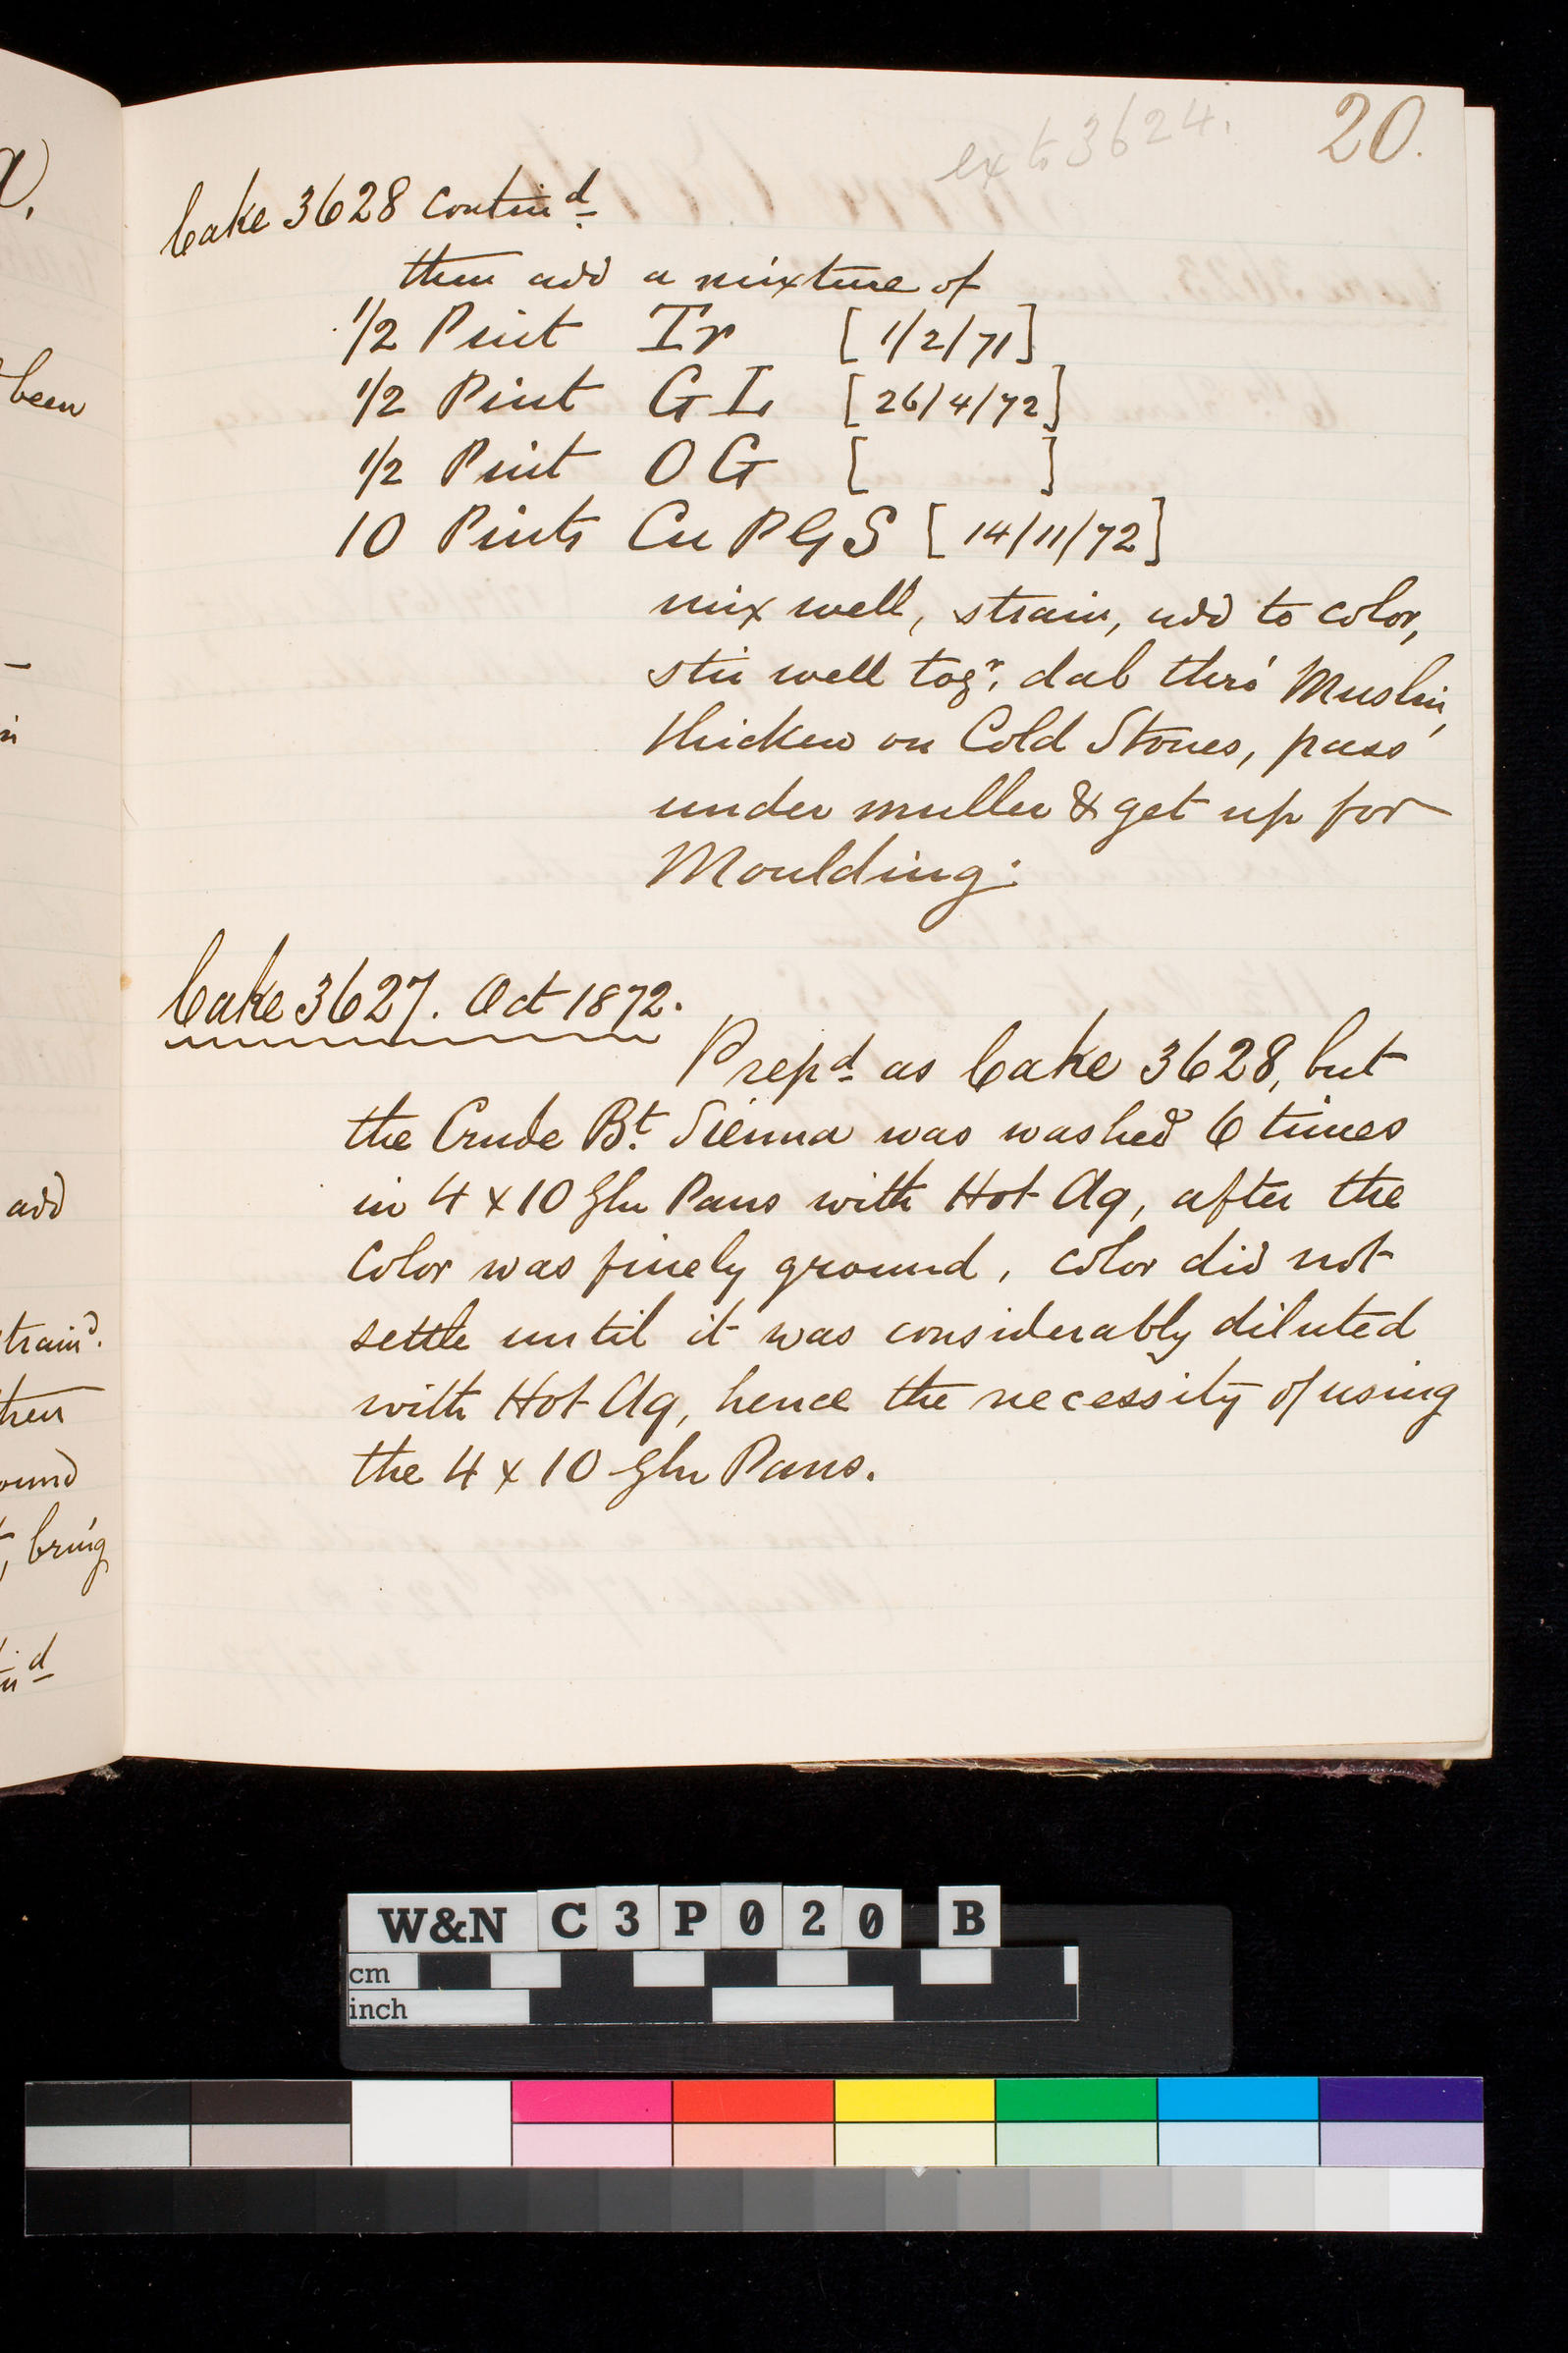 ex to 3624.
20.
Cake 3628 Contin^d
then add a mixture of
1/2 Pint Ir [1/2/71]
1/2 Pint G I [26/4/72]
1/2 Pint O G [ ]
10 Pints Cu P G S [14/11/72]
mix well, strain, add to color,
stir well tog^r, dab thro' Muslin,
thicken on Cold Stones, pass
under muller & get up for
Moulding:
Cake 3627. Oct 1872.
Prep^d as Cake 3628, but
the Crude B^t Sienna was washed 6 times
in 4 x 10 Gln Pans with Hot Aq, after the
Color was finely ground, color did not
settle until it was considerably diluted
with Hot Aq, hence the necessity of using
the 4 x 10 Gln Pans.
been
add
train^d.
then
ound
, bring
W&N C3P020 B
cm
inch